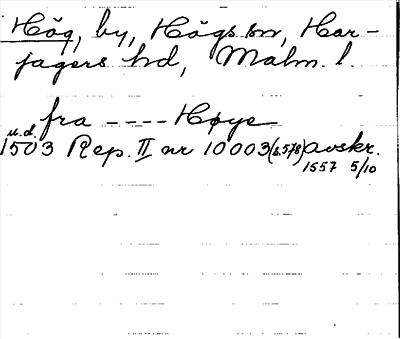 Hög, by, Högs sn, Har-
jagers hd, Malm. l.
fra ---- Høye
u.d.
1503 Rep. II nr 10003 (s.578) avskr.
1557 5/10